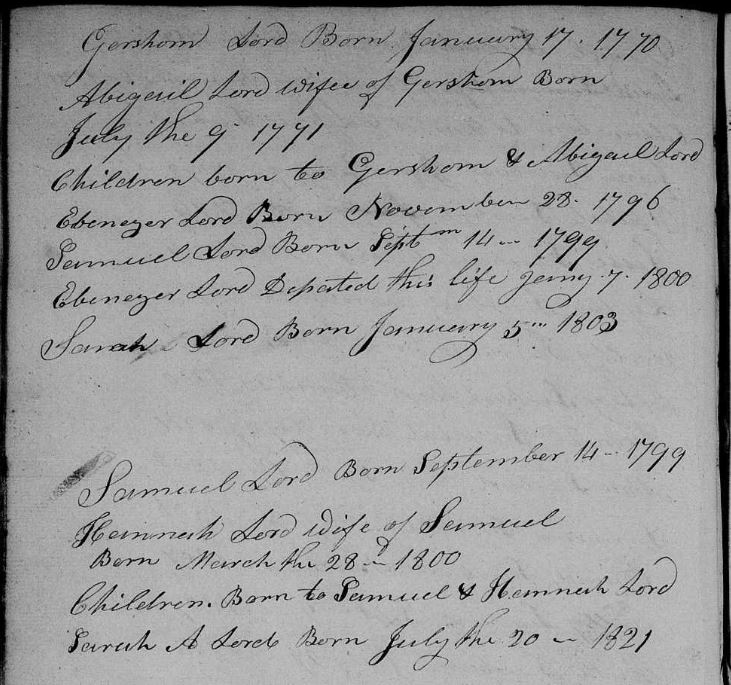 Gershom Lord Born January 17. 1770
Abigail Lord wifee of Gershom Born
July the 9 1771
Children born to Gershom & Abigail Lord
Ebenezer Lord Born November 28. 1796
Samuel Lord Born Septm 14 - 1799
Ebenezer Lord Depated this life Jany 7. 1800
Sarah Lord Born January 5th 1803
Samuel Lord Born September 14 - 1799
Hannah Lord wife of Samuel
Born March the 28 - 1800
Children. Born to Samuel & Hannah Lord
Sarah A Lord Born July the 20 - 1821